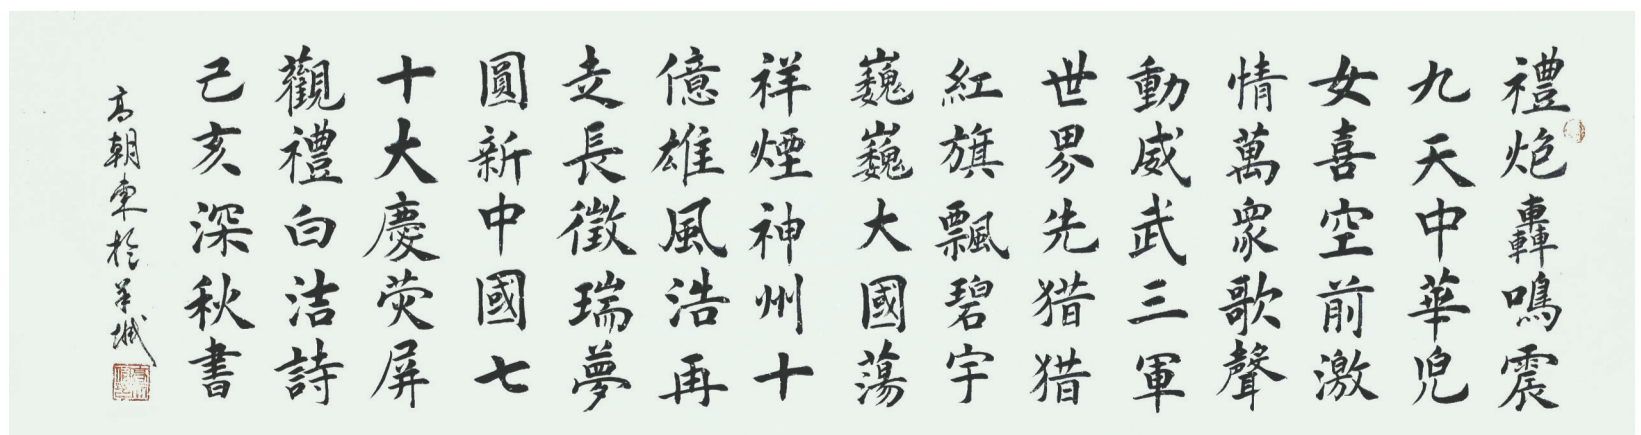 禮炮轟鳴震
九天中華兒
女喜空前激
情萬衆歌聲
動威武三軍
世界先猎猎
紅旗飄碧宇
巍巍大國蕩
祥煙神州十
億雄風浩再
走長徵瑞夢
圓新中國七
十大慶荧屏
觀禮白洁詩
己亥深秋書
高朝東於羊城